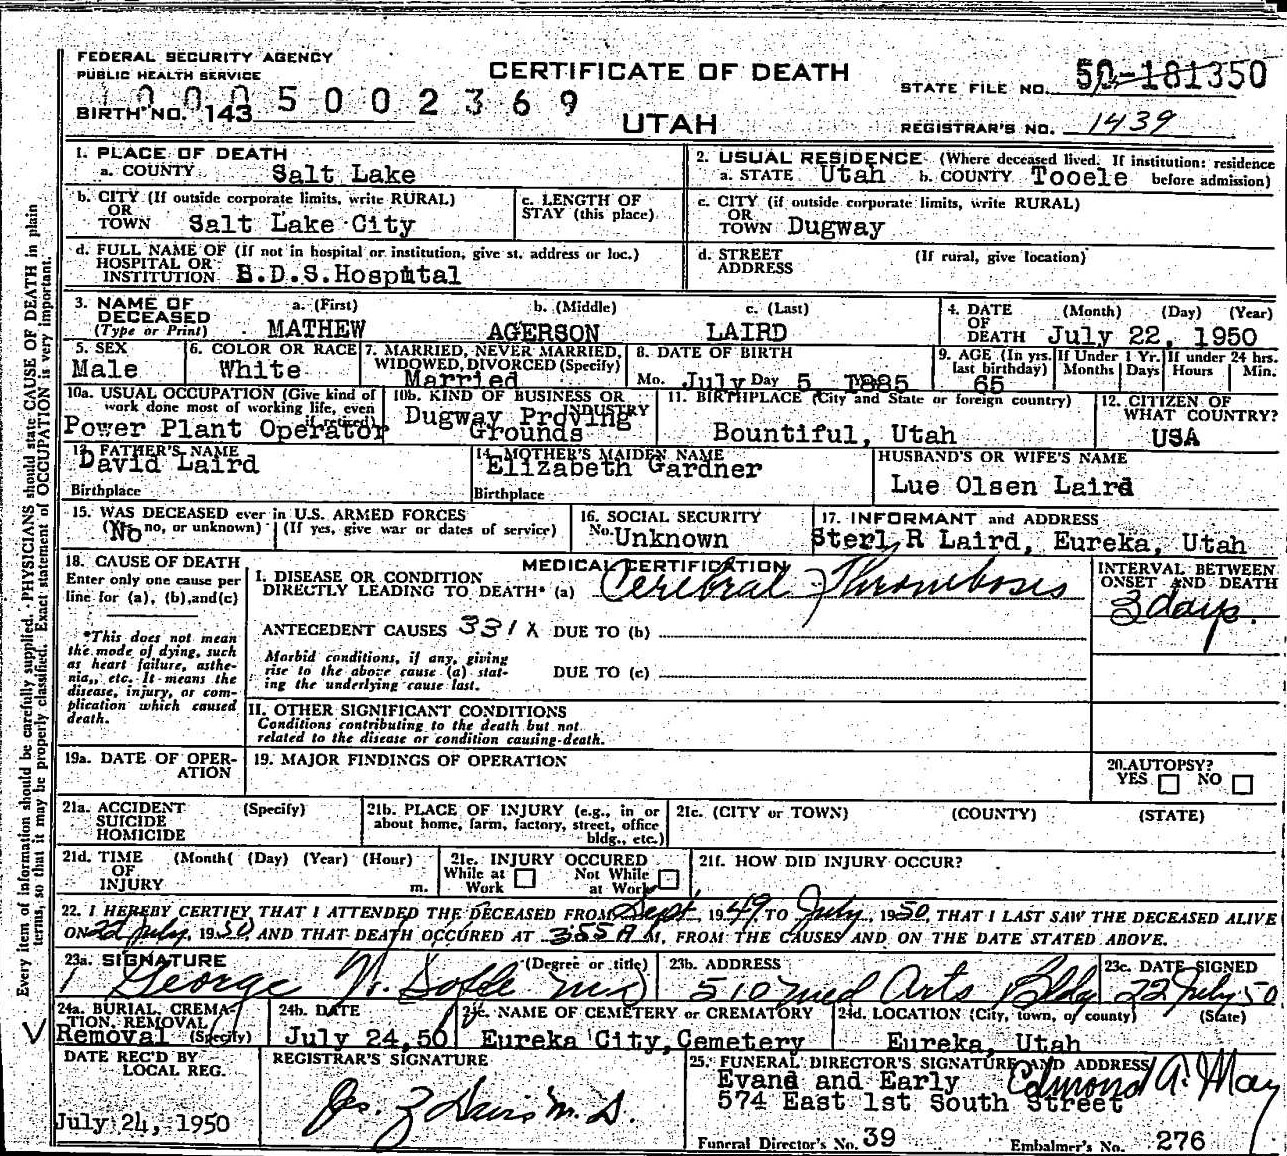 FEDERAL SECURITY AGENCY
PUBLIC HEALTH SERVICE
CERTIFICATE OF DEATH
STATE FILE NO. 50-181350
0005002369
BIRTH NO. 143
UTAH
REGISTRAR'S NO. 1439
1. PLACE OF DEATH
a. COUNTY Salt Lake
2. USUAL RESIDENCE (Where deceased lived. If institution: residence before admission)
a. STATE Utah b. COUNTY Tooele
b. CITY (If outside corporate limits, write RURAL)
OR
TOWN Salt Lake City
c. LENGTH OF
STAY (this place)
c. CITY (if outside corporate limits, write RURAL)
OR
TOWN Dugway
d. FULL NAME OF (If not in hospital or institution, give st. address or loc.)
HOSPITAL OR
INSTITUTION B.D.S.Hospital
d. STREET (If rural, give location)
ADDRESS
3. NAME OF
DECEASED
(Type or Print)
a. (First) b. (Middle) c. (Last)
MATHEW AGERSON LAIRD
4. DATE (Month) (Day) (Year)
OF
DEATH July 22, 1950
5. SEX
Male
6. COLOR OR RACE
White
7. MARRIED, NEVER MARRIED,
WIDOWED, DIVORCED (Specify)
Married
8. DATE OF BIRTH
Mo. July Day 5, 1885
9. AGE (In yrs. last birthday)
65
If Under 1 Yr.
Months Days
If under 24 hrs.
Hours Min.
10a. USUAL OCCUPATION (Give kind of
work done most of working life, even
if retired)
Power Plant Operator
10b. KIND OF BUSINESS OR
INDUSTRY
Dugway Proving
Grounds
11. BIRTHPLACE (City and State or foreign country)
Bountiful, Utah
12. CITIZEN OF
WHAT COUNTRY?
USA
13. FATHER'S NAME
David Laird
Birthplace
14. MOTHER'S MAIDEN NAME
Elizabeth Gardner
Birthplace
HUSBAND'S OR WIFE'S NAME
Lue Olsen Laird
15. WAS DECEASED ever in U.S. ARMED FORCES
(Yes, no, or unknown) (If yes, give war or dates of service)
No
16. SOCIAL SECURITY
No. Unknown
17. INFORMANT and ADDRESS
Sterl R Laird, Eureka, Utah
18. CAUSE OF DEATH
Enter only one cause per
line for (a), (b), and (c)
*This does not mean
the mode of dying, such
as heart failure, asthe-
nia, etc. It means the
disease, injury, or com-
plication which caused
death.
MEDICAL CERTIFICATION
I. DISEASE OR CONDITION
DIRECTLY LEADING TO DEATH* (a) Cerebral Thrombosis
INTERVAL BETWEEN
ONSET AND DEATH
3 days.
ANTECEDENT CAUSES 331X DUE TO (b)
Morbid conditions, if any, giving
rise to the above cause (a) stat-
ing the underlying cause last.
DUE TO (c)
II. OTHER SIGNIFICANT CONDITIONS
Conditions contributing to the death but not
related to the disease or condition causing death.
19a. DATE OF OPER-
ATION
19. MAJOR FINDINGS OF OPERATION
20. AUTOPSY?
YES NO
21a. ACCIDENT (Specify)
SUICIDE
HOMICIDE
21b. PLACE OF INJURY (e.g., in or
about home, farm, factory, street, office
bldg., etc.)
21c. (CITY or TOWN) (COUNTY) (STATE)
21d. TIME (Month( (Day) (Year) (Hour)
OF
INJURY m.
21e. INJURY OCCURED
While at Work
Not While at Work
21f. HOW DID INJURY OCCUR?
22. I HEREBY CERTIFY THAT I ATTENDED THE DECEASED FROM Sept, 1949 TO July, 1950, THAT I LAST SAW THE DECEASED ALIVE
ON July, 1950, AND THAT DEATH OCCURED AT 3:55 A M, FROM THE CAUSES AND ON THE DATE STATED ABOVE.
23a. SIGNATURE (Degree or title)
George W.
23b. ADDRESS
510 Med Arts Bldg
23c. DATE SIGNED
22 July 50
24a. BURIAL, CREMA-
TION, REMOVAL
(Specify)
Removal
24b. DATE
July 24, 50
24c. NAME OF CEMETERY or CREMATORY
Eureka City, Cemetery
24d. LOCATION (City, town, or county) (State)
Eureka, Utah
DATE REC'D BY
LOCAL REG.
July 24, 1950
REGISTRAR'S SIGNATURE
25. FUNERAL DIRECTOR'S SIGNATURE AND ADDRESS
Evans and Early Edmond A. May
574 East 1st South Street
Funeral Director's No. 39 Embalmer's No. 276
Every item of information should be carefully supplied. PHYSICIANS should state CAUSE OF DEATH in plain
terms, so that it may be properly classified. Exact statement of OCCUPATION is very important.